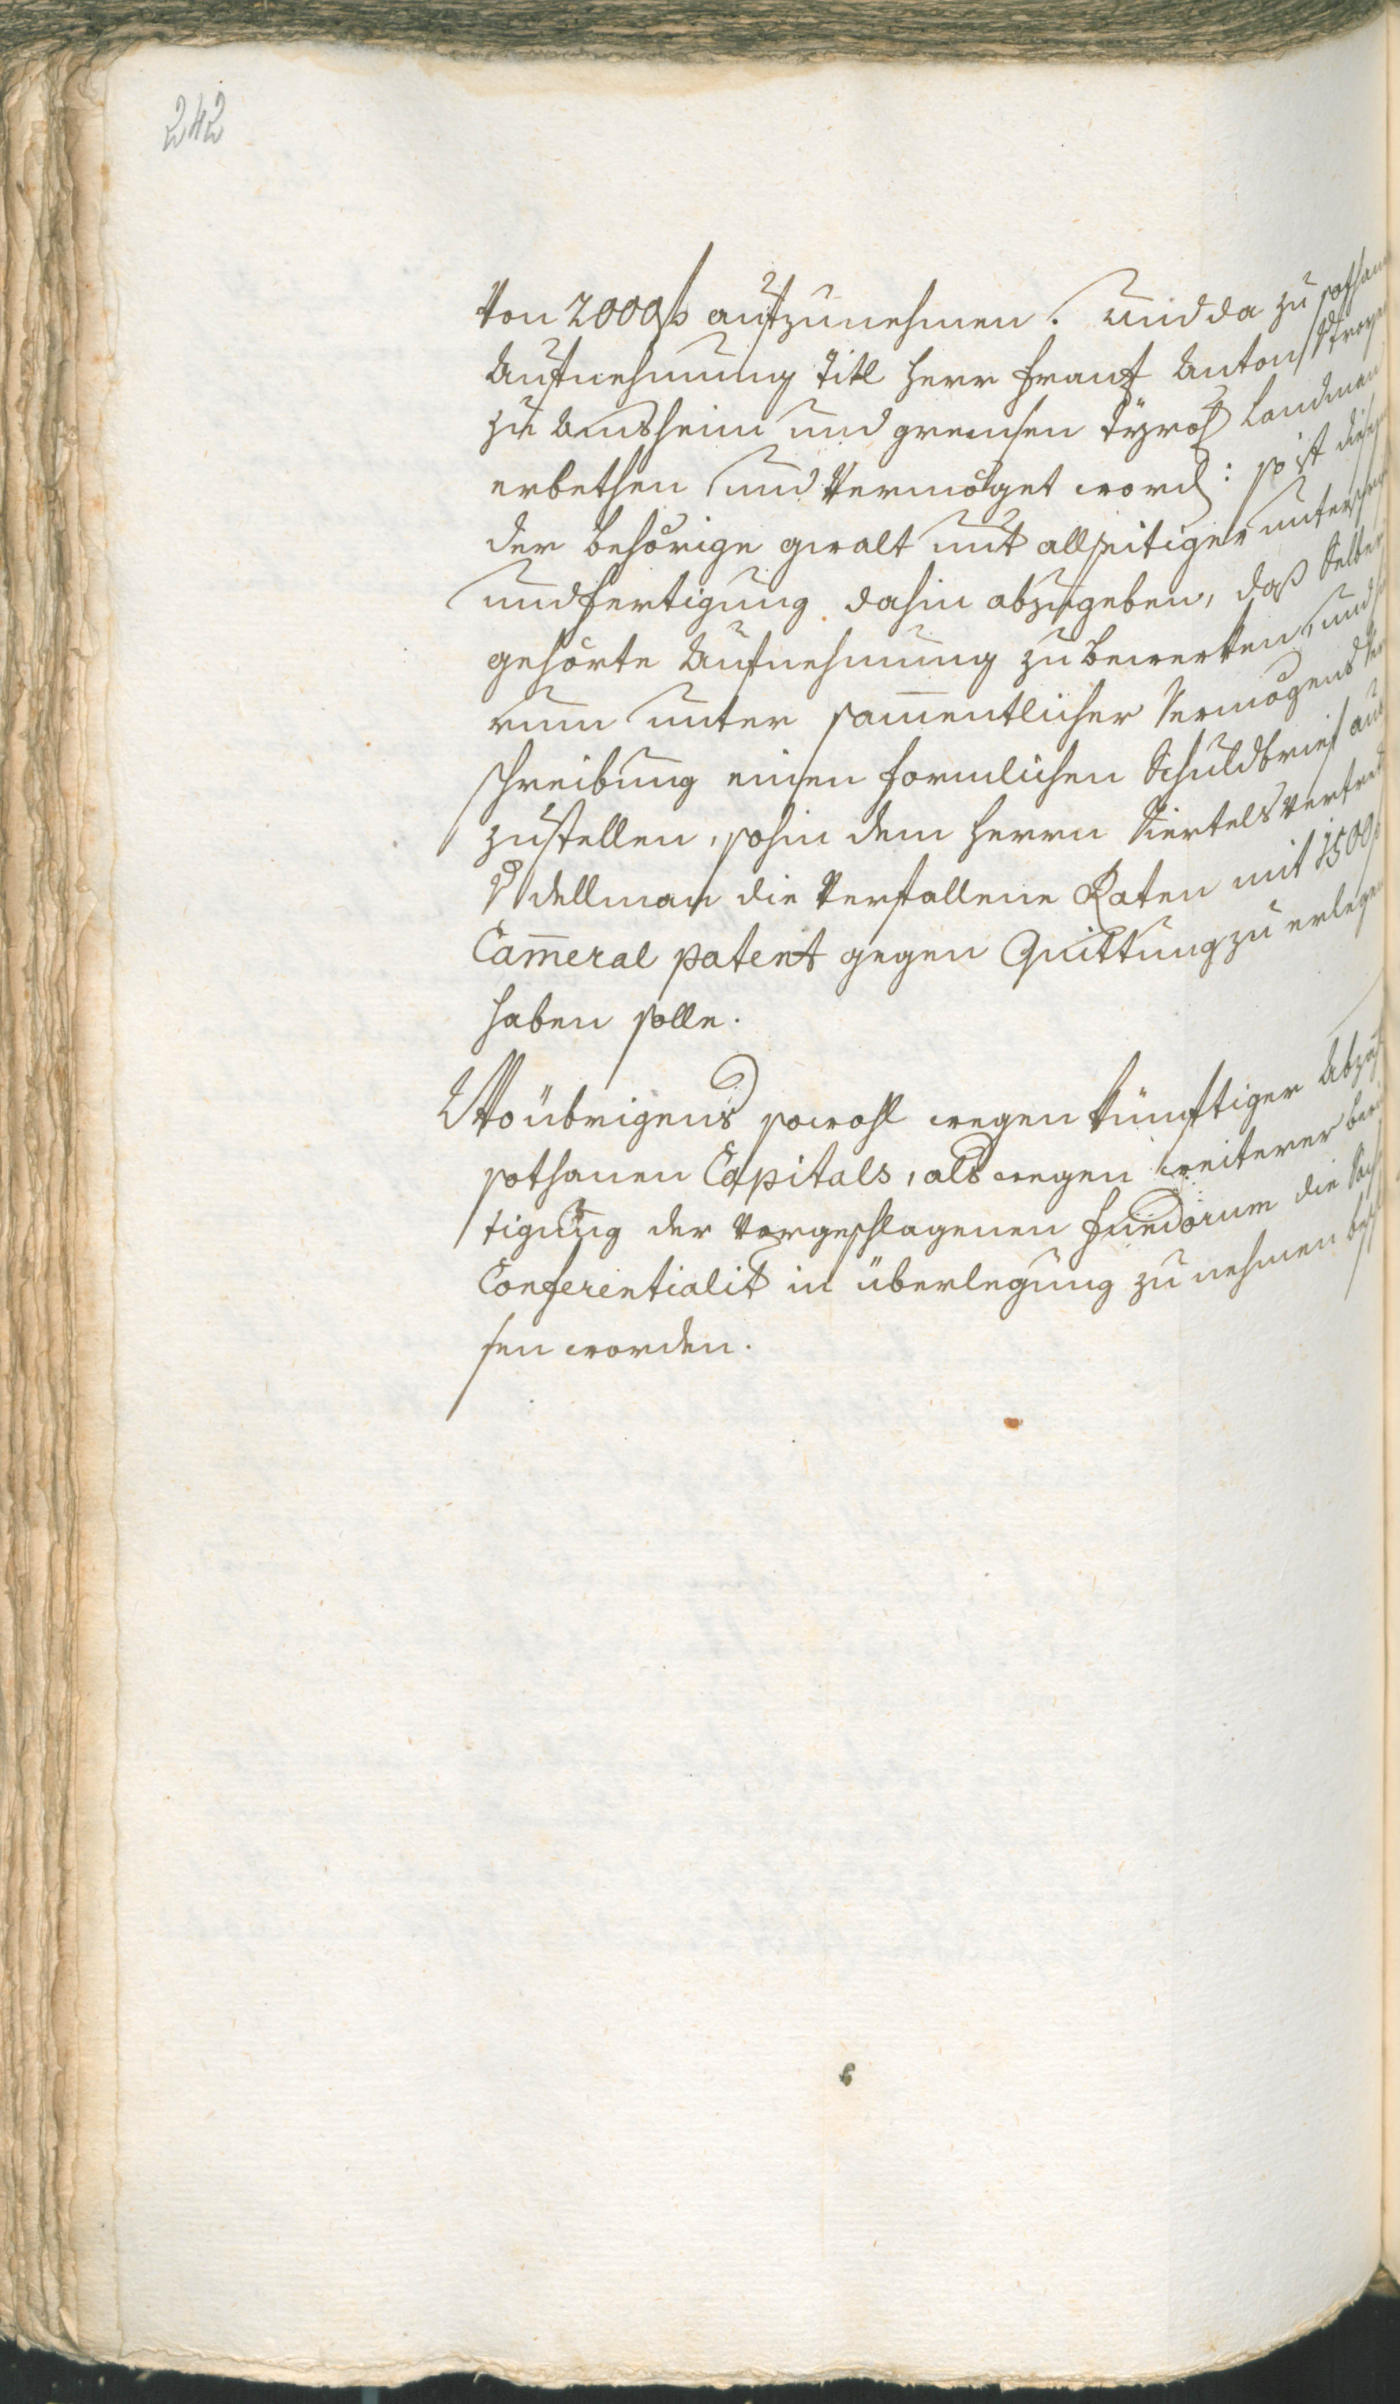 242
von 2000 f aufzunehmen. Und da zu sothan
Aufnehmung Titl Herr Frantz Anton v Troyer
zu Aufhheim und gremsen Tyrol Landman
erbethen und vermöget word: so ist diesem
der behörige gwalt mit allseitiger unterschrift
und fertigung dahin abzugeben, daß Selber
gehörte Aufnehmung zu bewerken, und
rum unter sam̄entlicher Vermögens Ver
schreibung einen formlichen Schuldbrief aus
zustellen, sohin dem Herrn Viertelsvertret
v dellman die verfallene Raten mit 1500 f
Cam̄eral patent gegen Quittung zu erlegen
haben solle.
Wo übrigens sowohl wegen künftiger Abzah
sothanen Capitals, als wegen weiterer beri
tigung der vorgeschlagenen fundorum die Sach
Conferentialit in überlegung zu nehmen besch
sen worden.